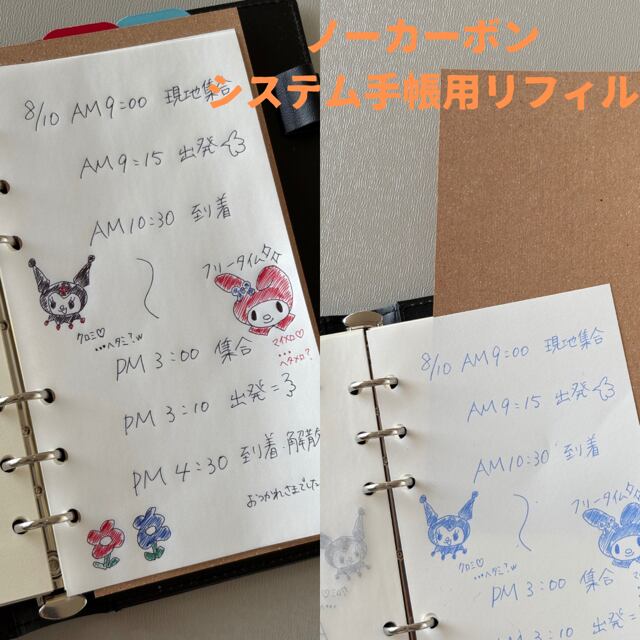 ノーカーボン
システム手帳用リフィル
8/10 AM9:00 現地集合
AM9:15 出発
AM10:30 到着
フリータイム
クロミ♡
…ヘタミ?w
マイメロ♡
…ヘタメロ?
PM 3:00 集合
PM 3:10 出発
PM 4:30 到着・解散
おつかれさまでした
8/10 AM9:00 現地集合
AM9:15 出発
AM10:30 到着
フリータイム
クロミ♡
…ヘタミ?w
PM 3:00 集合
PM 3:10 出発